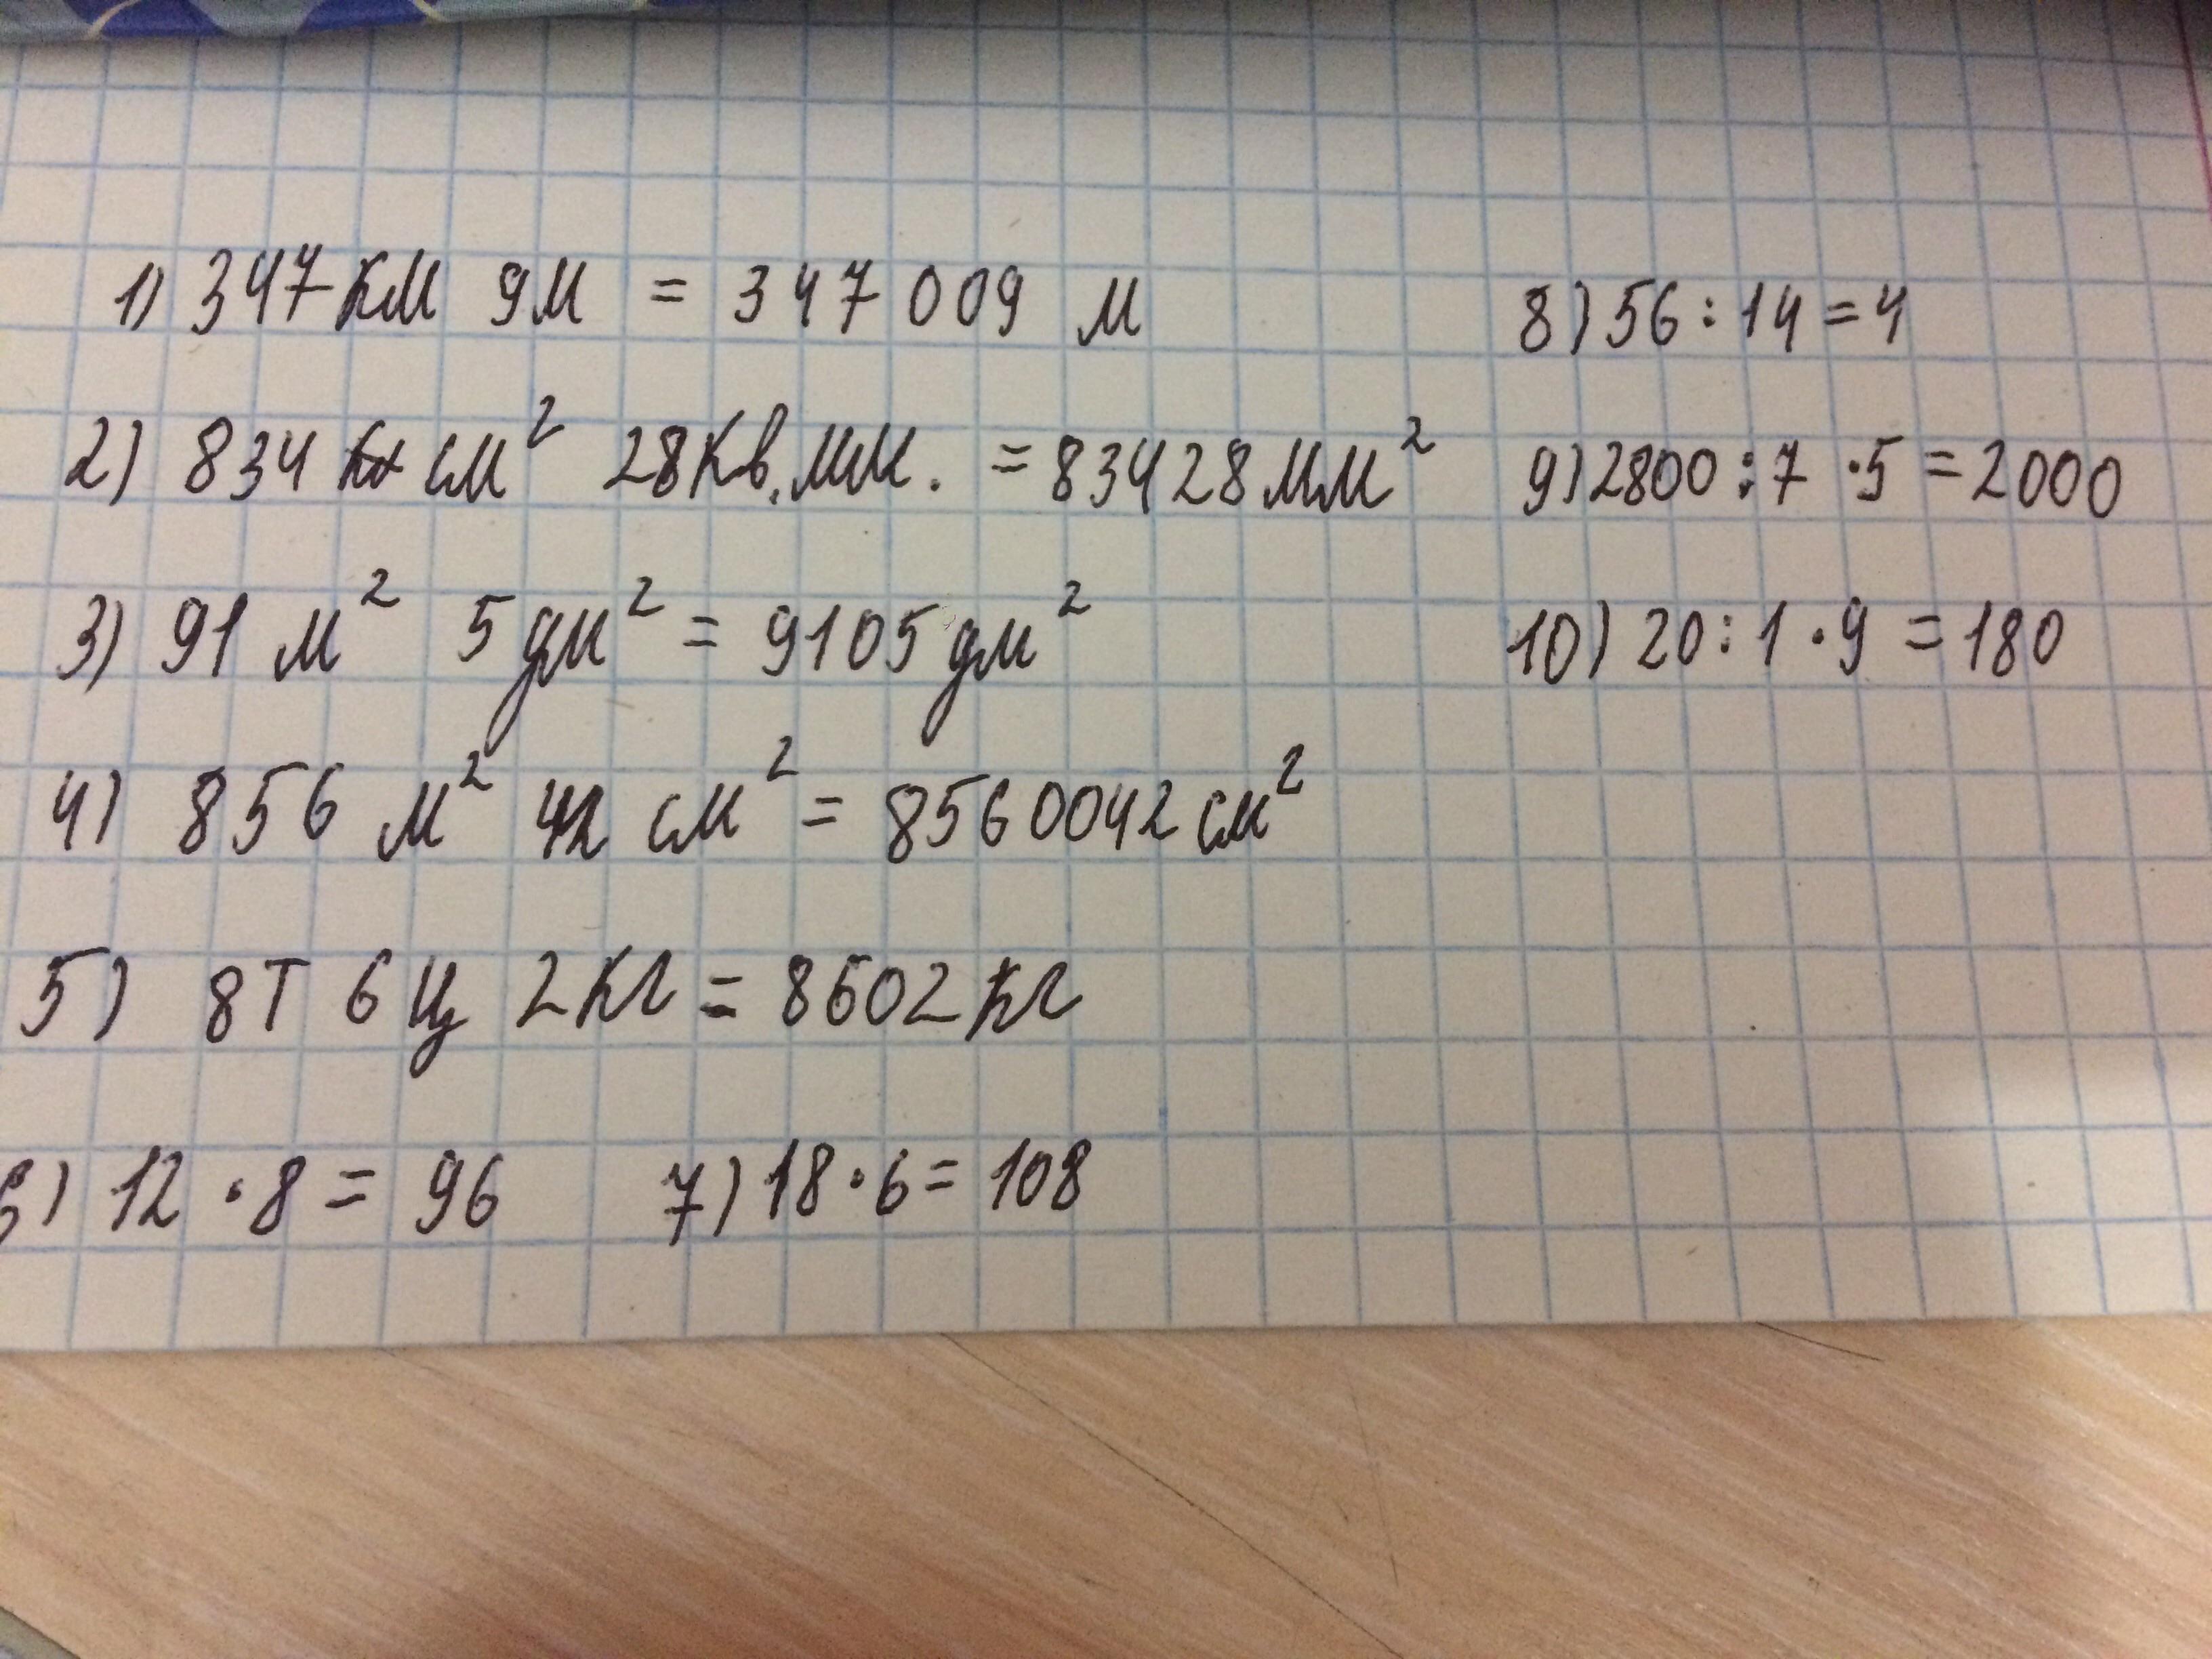 1) 347 км 9 м = 347 009 м
2) 834 см² 28 кв. мм. = 83428 мм²
3) 91 м² 5 дм² = 9105 дм²
4) 856 м² 42 см² = 8560042 см²
5) 8 т 6 ц 2 кг = 8602 кг
6) 12 · 8 = 96 7) 18 · 6 = 108
8) 56 : 14 = 4
9) 2800 : 7 · 5 = 2000
10) 20 : 1 · 9 = 180